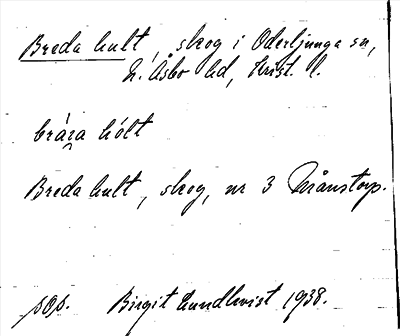 Breda hult, skog i Oderljunga sn,
N. Åsbo hd, Krist. l.
brára hólt
Breda hult, skog, nr 3 Månstorp.
pop. Birgit Lundkvist 1938.